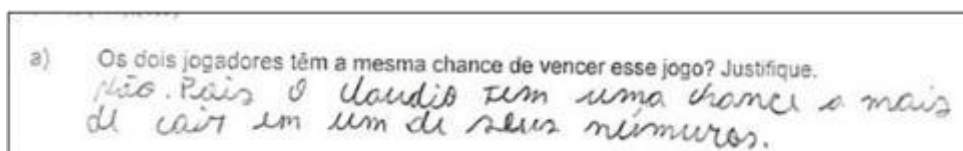 a) Os dois jogadores têm a mesma chance de vencer esse jogo? Justifique.
Não. Pois o claudio tem uma chance a mais
de cair em um de seus números.